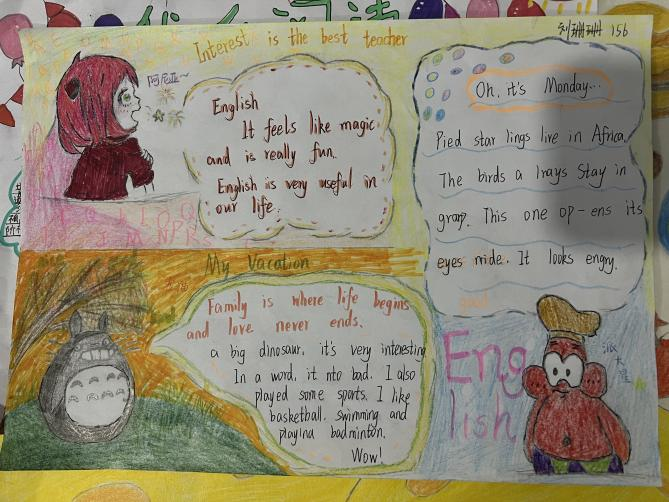 刘珊珊 156
Interest is the best teacher
阿尼亚~
English
It feels like magic
and is really fun.
English is very useful in
our life.
Oh, it's Monday...
Pied star lings live in Africa
The birds a lrays Stay in
groap. This one op-ens its
eyes mide. It looks engry.
My Vacation
Family is where life begins
and love never ends.
a big dinosaur. it's very interesting
In a word, it nto bad. I also
played some sports. I like
basketball. swimming and
playina badminton.
Wow!
Eng
lish
派大星